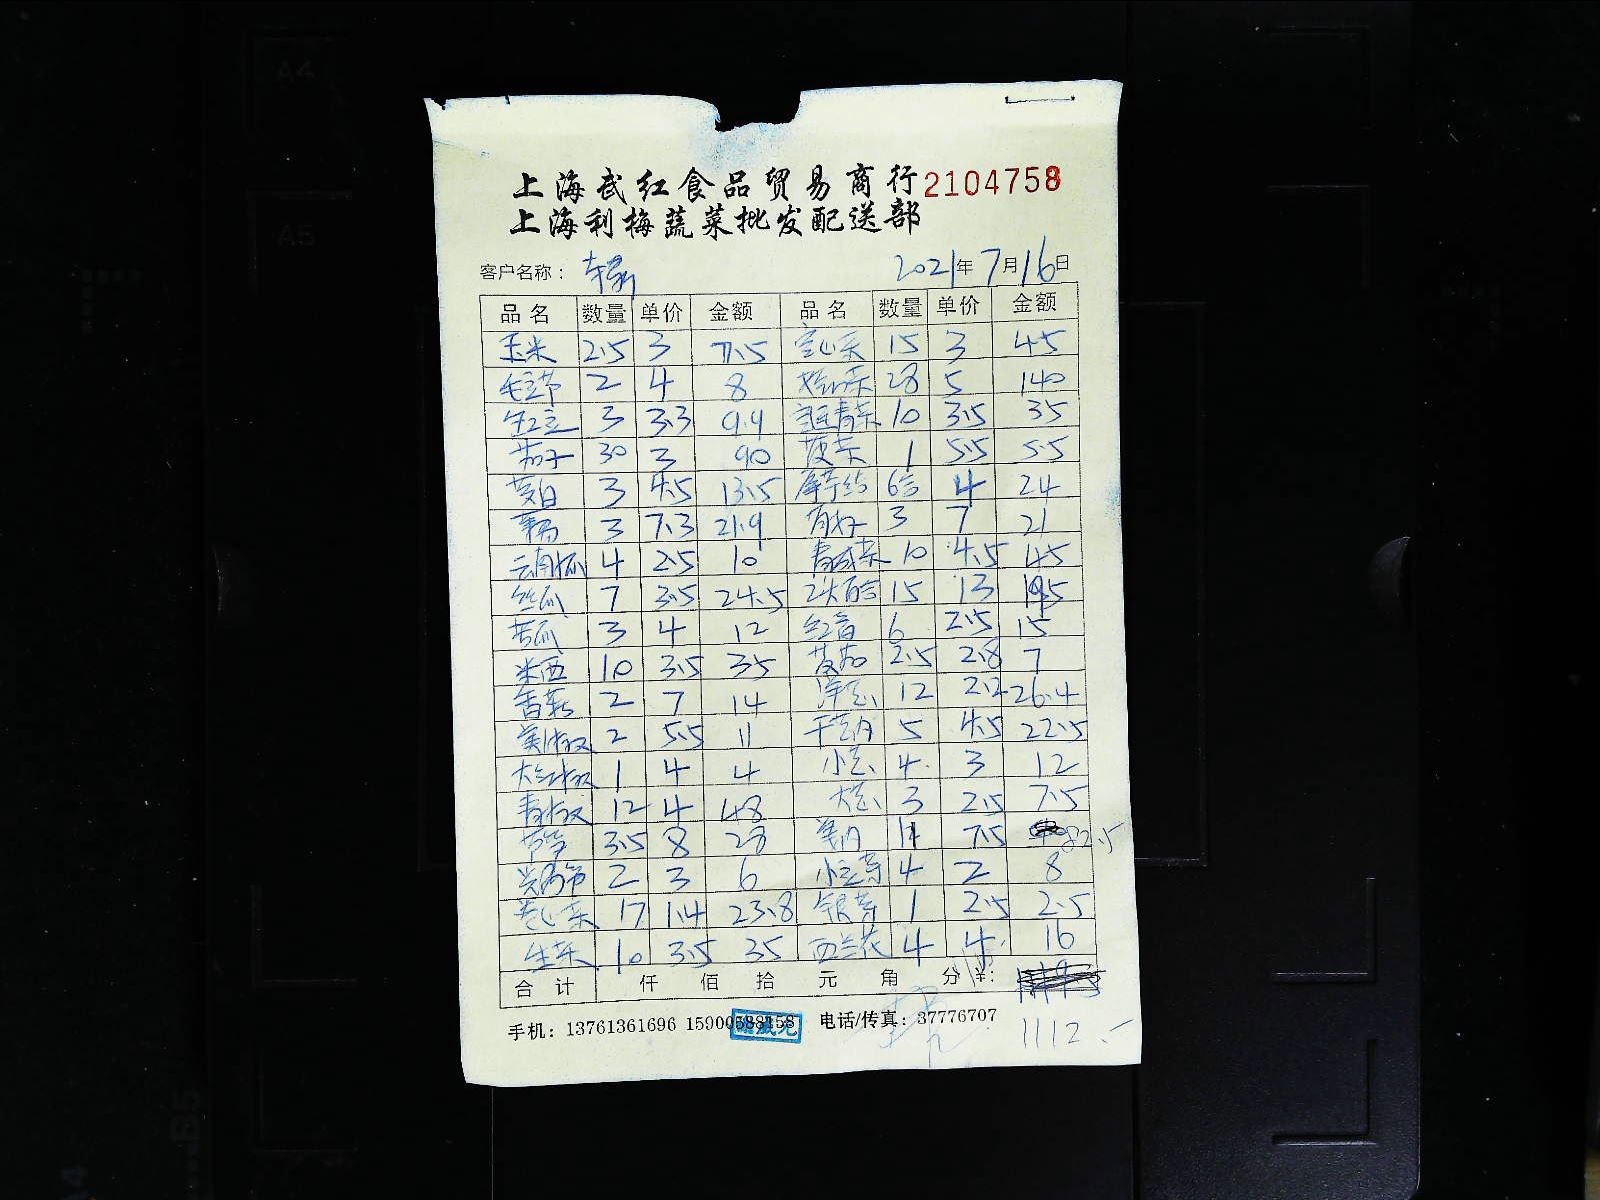 上海武红食品贸易商行 2104758
上海利梅蔬菜批发配送部
客户名称： 2021年7月16日
品名 数量 单价 金额 品名 数量 单价 金额
玉米 2.5 3 7.5 空心菜 15 3 45
毛豆节 2 4 8 28 5 140
3 3.3 9.9 青菜 10 3.5 35
茄子 30 3 90 菠菜 1 5.5 5.5
茭白 3 4.5 13.5 6 4 24
3 7.3 21.9 3 7 21
云南瓜 4 2.5 10 10 4.5 45
丝瓜 7 3.5 24.5 15 13 195
苦瓜 3 4 12 6 2.5 15
米西 10 3.5 35 2.5 2.8 7
香菇 2 7 14 洋葱 12 2.2 26.4
美椒 2 5.5 11 5 4.5 22.5
大红椒 1 4 4 小葱 4 3 12
青椒 12 4 48 大葱 3 2.5 7.5
3.5 8 28 11 7.5 82.5
2 3 6 小豆芽 4 2 8
卷心菜 17 1.4 23.8 银芽 1 2.5 2.5
生菜 10 3.5 35 西兰花 4 4 16
合计 仟 佰 拾 元 角 分 ¥:
手机：13761361696 15900588158 电话/传真：37776707
1112.-